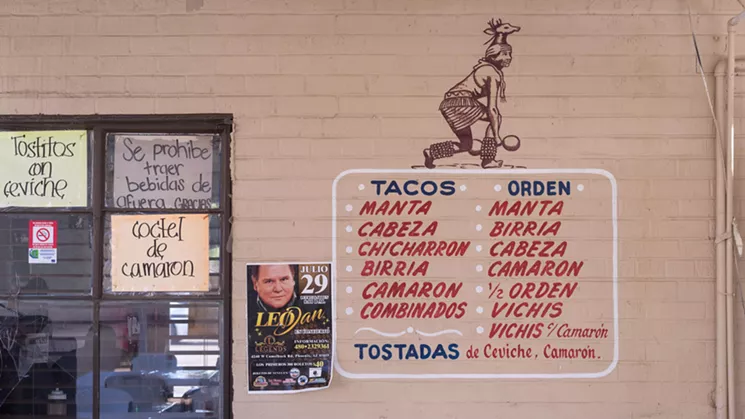 Tostitos
con
Ceviche
Se prohibe
traer
bebidas de
afuera GRACIAS
Coctel
de
camaron
JULIO
29
LEO Dan
LEGENDS
INFORMACION
TACOS
MANTA
CABEZA
CHICHARRON
BIRRIA
CAMARON
COMBINADOS
ORDEN
MANTA
BIRRIA
CABEZA
CAMARON
½ ORDEN
VICHIS
VICHIS c/Camarón
TOSTADAS de Ceviche, Camarón.